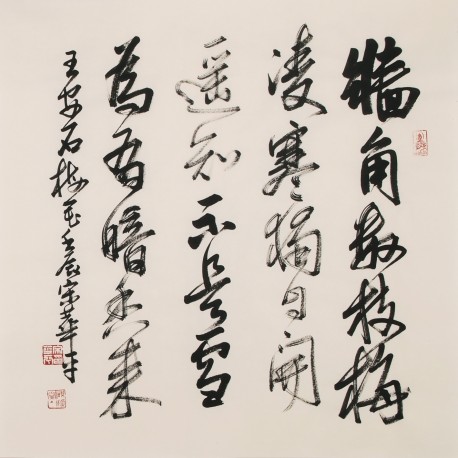 牆角數枝梅
凌寒獨自開
遥知不是雪
為有暗香来
王安石梅花壬辰宋華平